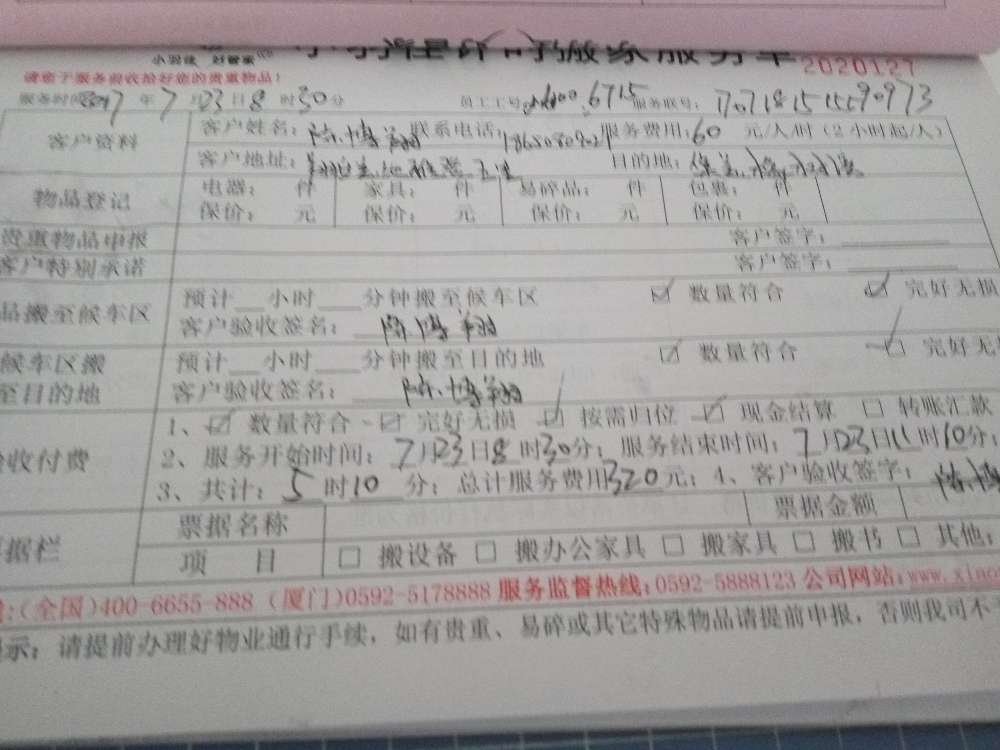 小羽佳 好管家
搬家服务单 2020127
请您于服务前收拾好您的贵重物品!
服务时间:2017年7月23日8时30分 员工工号 6715 服务联号:
客户资料 客户姓名:陈博翔 联系电话: 服务费用:60 元/人/时(2小时起/人)
客户地址: 目的地:
物品登记 电器: 件 家具: 件 易碎品: 件 包裹: 件
保价: 元 保价: 元 保价: 元 保价: 元
贵重物品申报 客户签字:
客户特别承诺 客户签字:
品搬至候车区 预计__小时___分钟搬至候车区 ☑ 数量符合 ☑ 完好无损
客户验收签名: 陈博翔
候车区搬 预计__小时___分钟搬至目的地 ☑ 数量符合 ☑ 完好无
至目的地 客户验收签名: 陈博翔
1、☑ 数量符合 ☑ 完好无损 ☑ 按需归位 ☑ 现金结算 □ 转账汇款
收付费 2、服务开始时间:7月23日8时30分; 服务结束时间:7月23日11时10分;
3、共计:5时10分; 总计服务费用320元; 4、客户验收签字:陈博
票据名称 票据金额
据栏 项 目 □ 搬设备 □ 搬办公家具 □ 搬家具 □ 搬书 □ 其他:
:(全国)400-6655-888 (厦门)0592-5178888 服务监督热线:0592-5888123 公司网站:www.xiao
示: 请提前办理好物业通行手续, 如有贵重、易碎或其它特殊物品请提前申报, 否则我司不